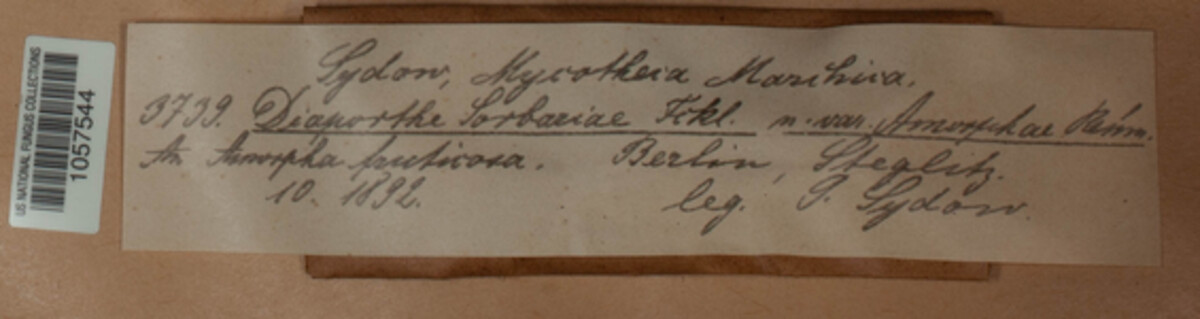 US NATIONAL FUNGUS COLLECTIONS
1057544
Sydow, Mycotheca Marchica.
3739. Diaporthe Sorbariae Fckl. n. var. Amorphae
An Amorpha fruticosa. Berlin, Steglitz.
10. 1892. leg. P. Sydow.